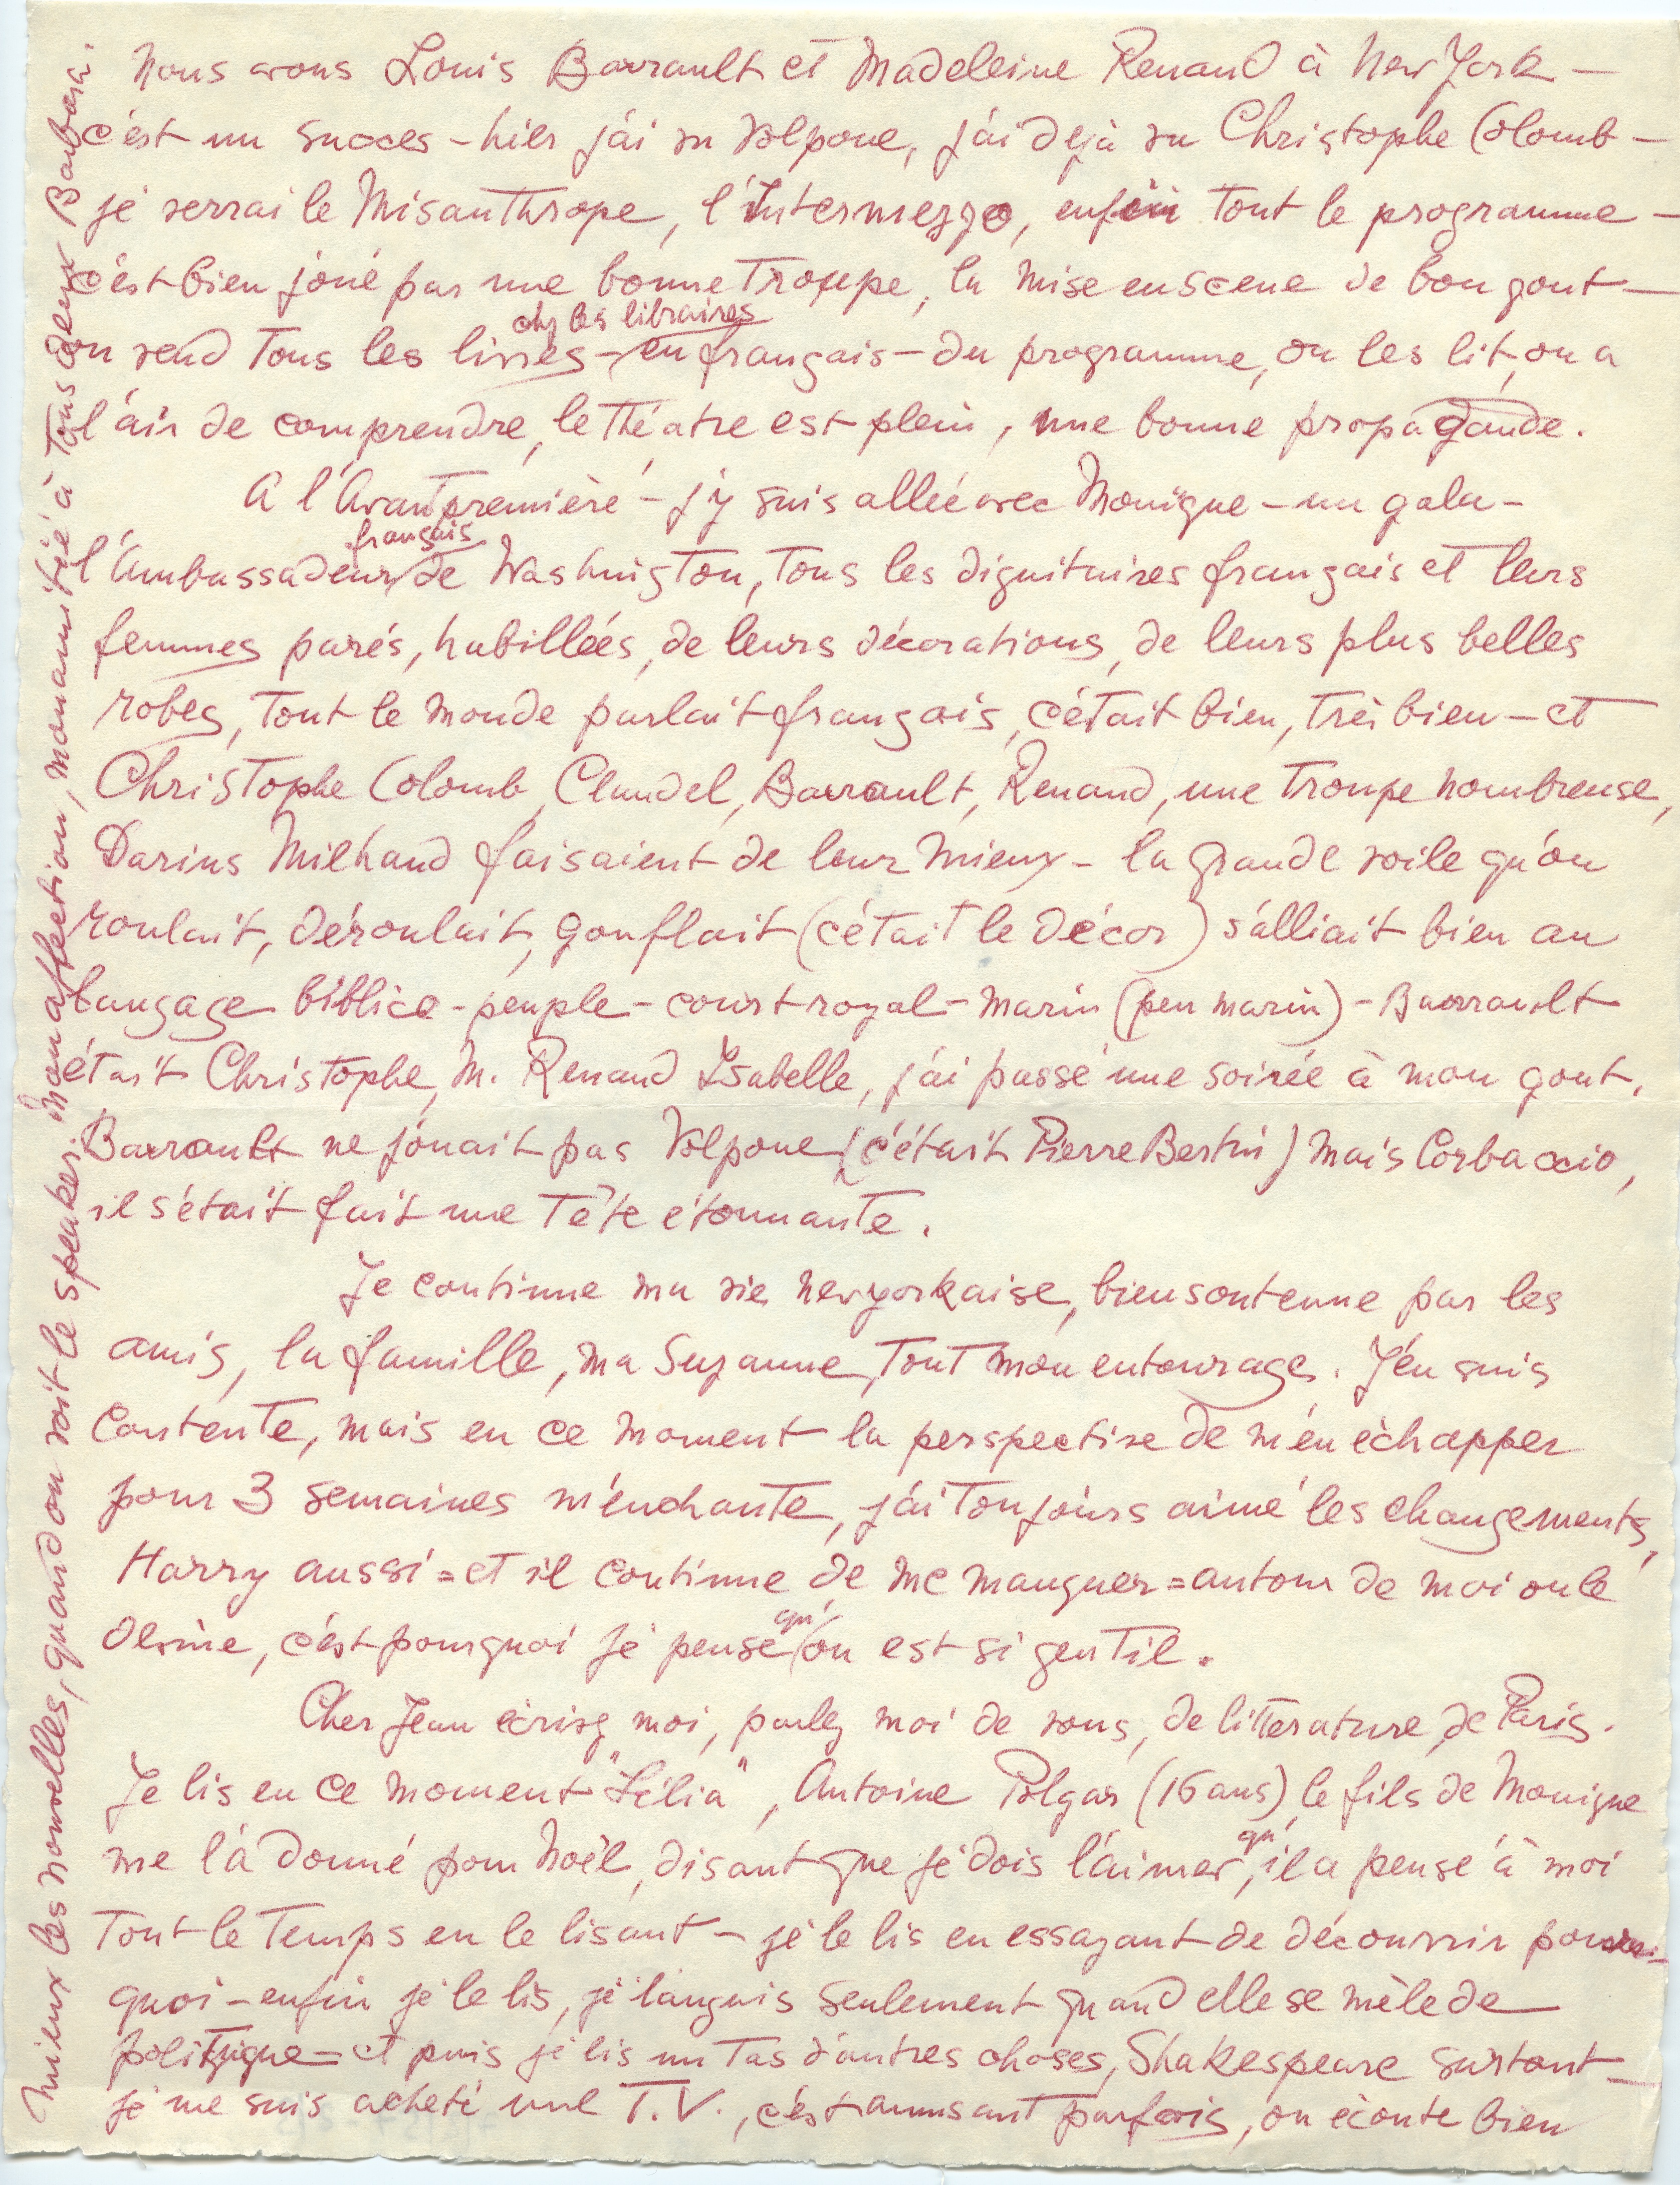 Nous avons Louis Barrault et Madeleine Renaud à New York –
c'est un succes – hier j'ai vu Volpone, j'ai déjà vu Christophe Colomb –
je verrai le Misanthrope, l'Intermezzo, enfin tout le programme –
c'est bien joué par une bonne troupe, la mise en scene de bon gout –
chez les libraires
on vend tous les livres – en français – du programme, on les lit, on a
l'air de comprendre, le théatre est plein, une bonne propagande.
A l'Avant première – j'y suis allée avec Monique – un gala –
français
l'Ambassadeur de Washington, tous les dignitaires français et leurs
femmes parés, habillées, de leurs décorations, de leurs plus belles
robes, tout le monde parlait français, c'était bien, très bien – et
Christophe Colomb, Claudel, Barrault, Renaud, une troupe nombreuse,
Darius Milhaud faisaient de leur mieux – la grande voile qu'on
roulait, déroulait, gonflait (c'était le décor) s'alliait bien au
langage biblico - peuple - court royal - marin (peu marin) – Barrault
était Christophe, M. Renaud Isabelle, j'ai passé une soirée à mon gout.
Barrault ne jouait pas Volpone (c'était Pierre Bertin) mais Corbaccio,
il s'était fait une tête étonnante.
Je continue ma vie newyorkaise, bien soutenue par les
amis, la famille, ma Suzanne, tout mon entourage. J'en suis
contente, mais en ce moment la perspective de m'en échapper
pour 3 semaines m'enchante, j'ai toujours aimé les changements,
Harry aussi = et il continue de me manquer = autour de moi on le
devine, c'est pourquoi je pense
qu'
on est si gentil.
Cher Jean écrivez moi, parlez moi de vous, de litterature, de Paris.
Je lis en ce moment "Lélia", Antoine Polgar (16 ans) le fils de Monique
me l'a donné pour Noël, disant que je dois l'aimer,
qu'
il a pensé à moi
tout le temps en le lisant – je le lis en essayant de découvrir pour-
quoi – enfin je le lis, je languis seulement quand elle se mèle de
politique = et puis je lis un tas d'autres choses, Shakespeare surtout –
je me suis acheté une T.V., c'est amusant parfois, on écoute bien
mieux les nouvelles, quand on voit le speaker. Mon affection, mon amitié à tous deux Barbara.